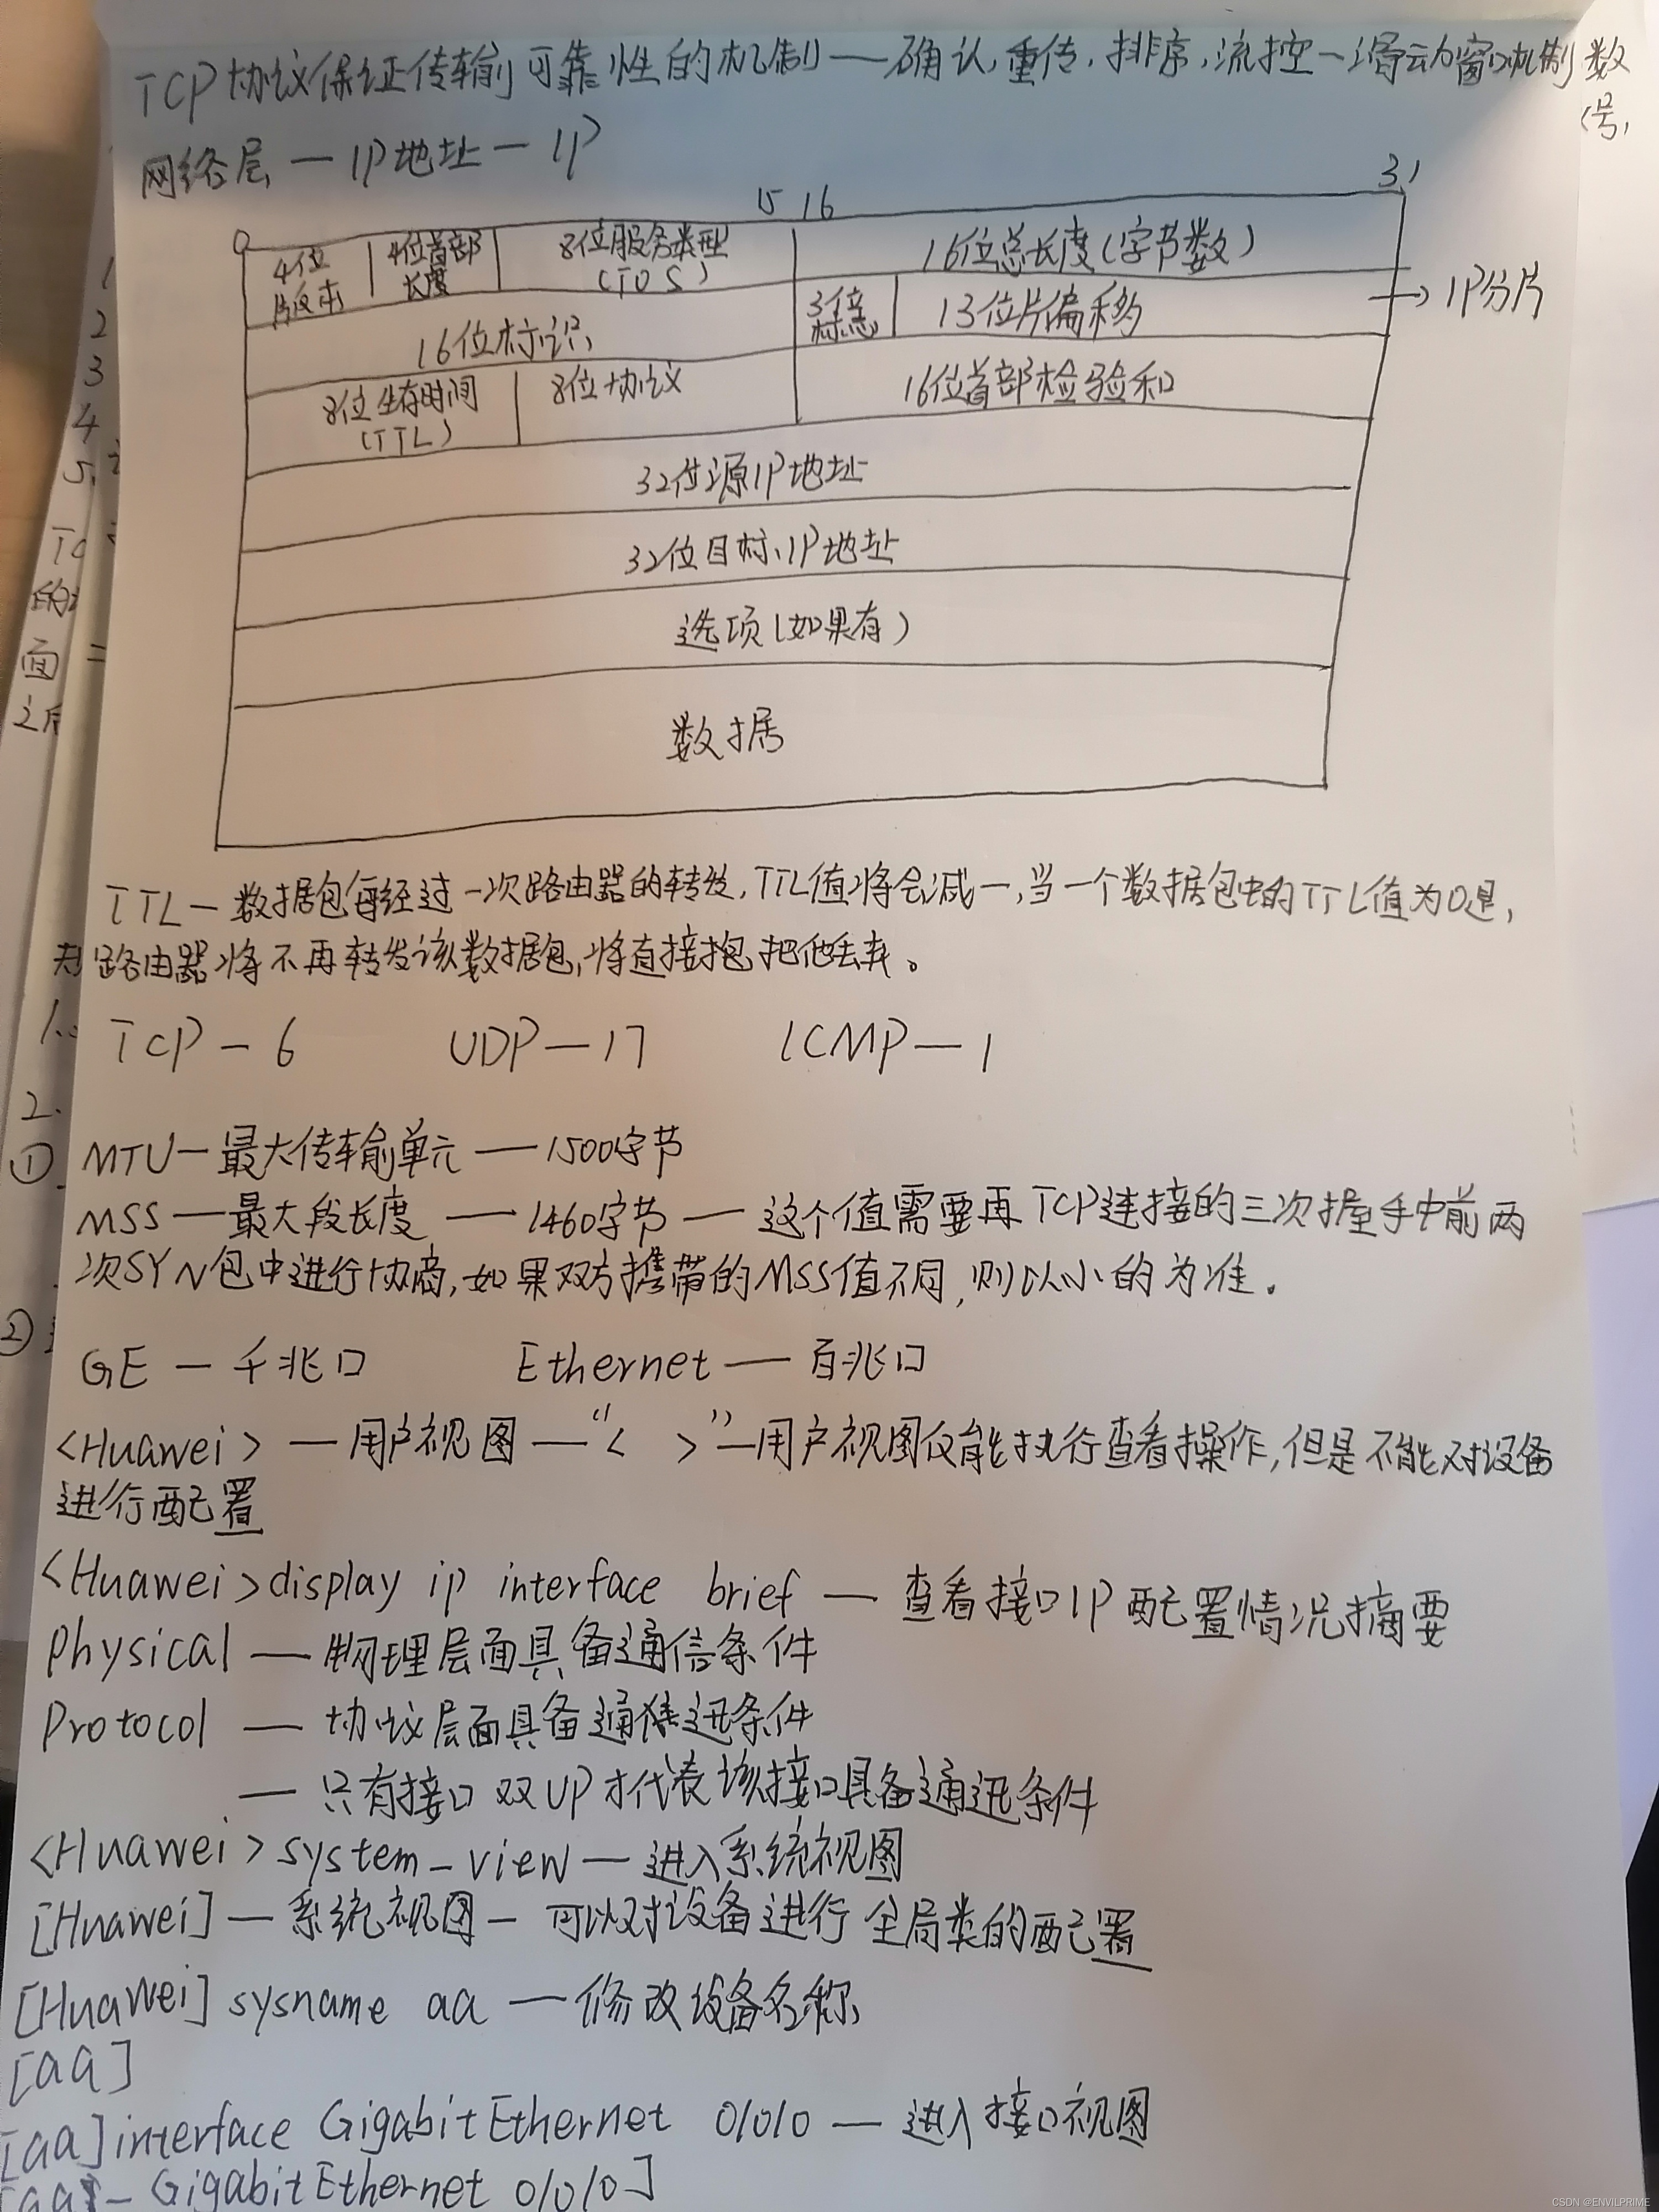 TCP协议保证传输可靠性的机制——确认,重传,排序,流控—滑动窗口机制 数
网络层 — IP地址 — IP
号,
0 15 16 31
4位版本 4位首部长度 8位服务类型(TOS) 16位总长度(字节数)
16位标识 3位标志 13位片偏移 → IP分片
8位生存时间(TTL) 8位协议 16位首部检验和
32位源IP地址
32位目标IP地址
选项(如果有)
数据
TTL — 数据包每经过一次路由器的转发,TTL值将会减一,当一个数据包中的TTL值为0是,
路由器将不再转发该数据包,将直接抱把他丢弃。
TCP — 6 UDP — 17 ICMP — 1
MTU — 最大传输单元 —— 1500字节
MSS —— 最大段长度 —— 1460字节 — 这个值需要再TCP连接的三次握手中前两
次SYN包中进行协商,如果双方携带的MSS值不同,则以小的为准。
GE — 千兆口 Ethernet —— 百兆口
<Huawei> — 用户视图 —“< >”—用户视图仅能执行查看操作,但是不能对设备
进行配置
<Huawei>display ip interface brief — 查看接口IP配置情况摘要
Physical — 物理层面具备通信条件
Protocol — 协议层面具备通讯条件
— 只有接口双UP才代表该接口具备通迅条件
<Huawei>system_view — 进入系统视图
[Huawei] — 系统视图 — 可以对设备进行全局类的配置
[Huawei] sysname aa — 修改设备名称
[aa]
[aa]interface GigabitEthernet 0/0/0 — 进入接口视图
[aa-GigabitEthernet 0/0/0]
1
2
3
4
5.
TC
的
面
之后
1.
2.
①
②
CSDN @ENVILPRIME